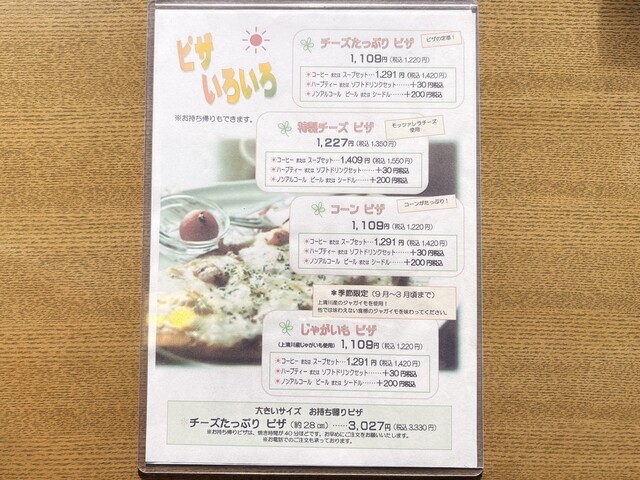 ピザ
いろいろ
※お持ち帰りもできます。
チーズたっぷり ピザ
ピザの定番！
1,109円(税込1,220円)
＊コーヒー または スープセット…1,291円(税込1,420円)
＊ハーブティー または ソフトドリンクセット……＋30円税込
＊ノンアルコール ビール または シードル……＋200円税込
特製チーズ ピザ
モッツァレラチーズ
使用
1,227円(税込1,350円)
＊コーヒー または スープセット…1,409円(税込1,550円)
＊ハーブティー または ソフトドリンクセット……＋30円税込
＊ノンアルコール ビール または シードル……＋200円税込
コーン ピザ
コーンがたっぷり！
1,109円(税込1,220円)
＊コーヒー または スープセット…1,291円(税込1,420円)
＊ハーブティー または ソフトドリンクセット……＋30円税込
＊ノンアルコール ビール または シードル……＋200円税込
＊季節限定（9月～3月頃まで）
上滝川産のジャガイモを使用！
他では味わえない食感のジャガイモを味わってください。
じゃがいも ピザ
(上滝川産じゃがいも使用) 1,109円(税込1,220円)
＊コーヒー または スープセット…1,291円(税込1,420円)
＊ハーブティー または ソフトドリンクセット……＋30円税込
＊ノンアルコール ビール または シードル……＋200円税込
大きいサイズ お持ち帰りピザ
チーズたっぷり ピザ（約28㎝）……3,027円(税込3,330円)
※お持ち帰りピザは、焼き時間が40分ほどです。お早めにご注文をお願いいたします。
※お電話でのご注文も承っております。